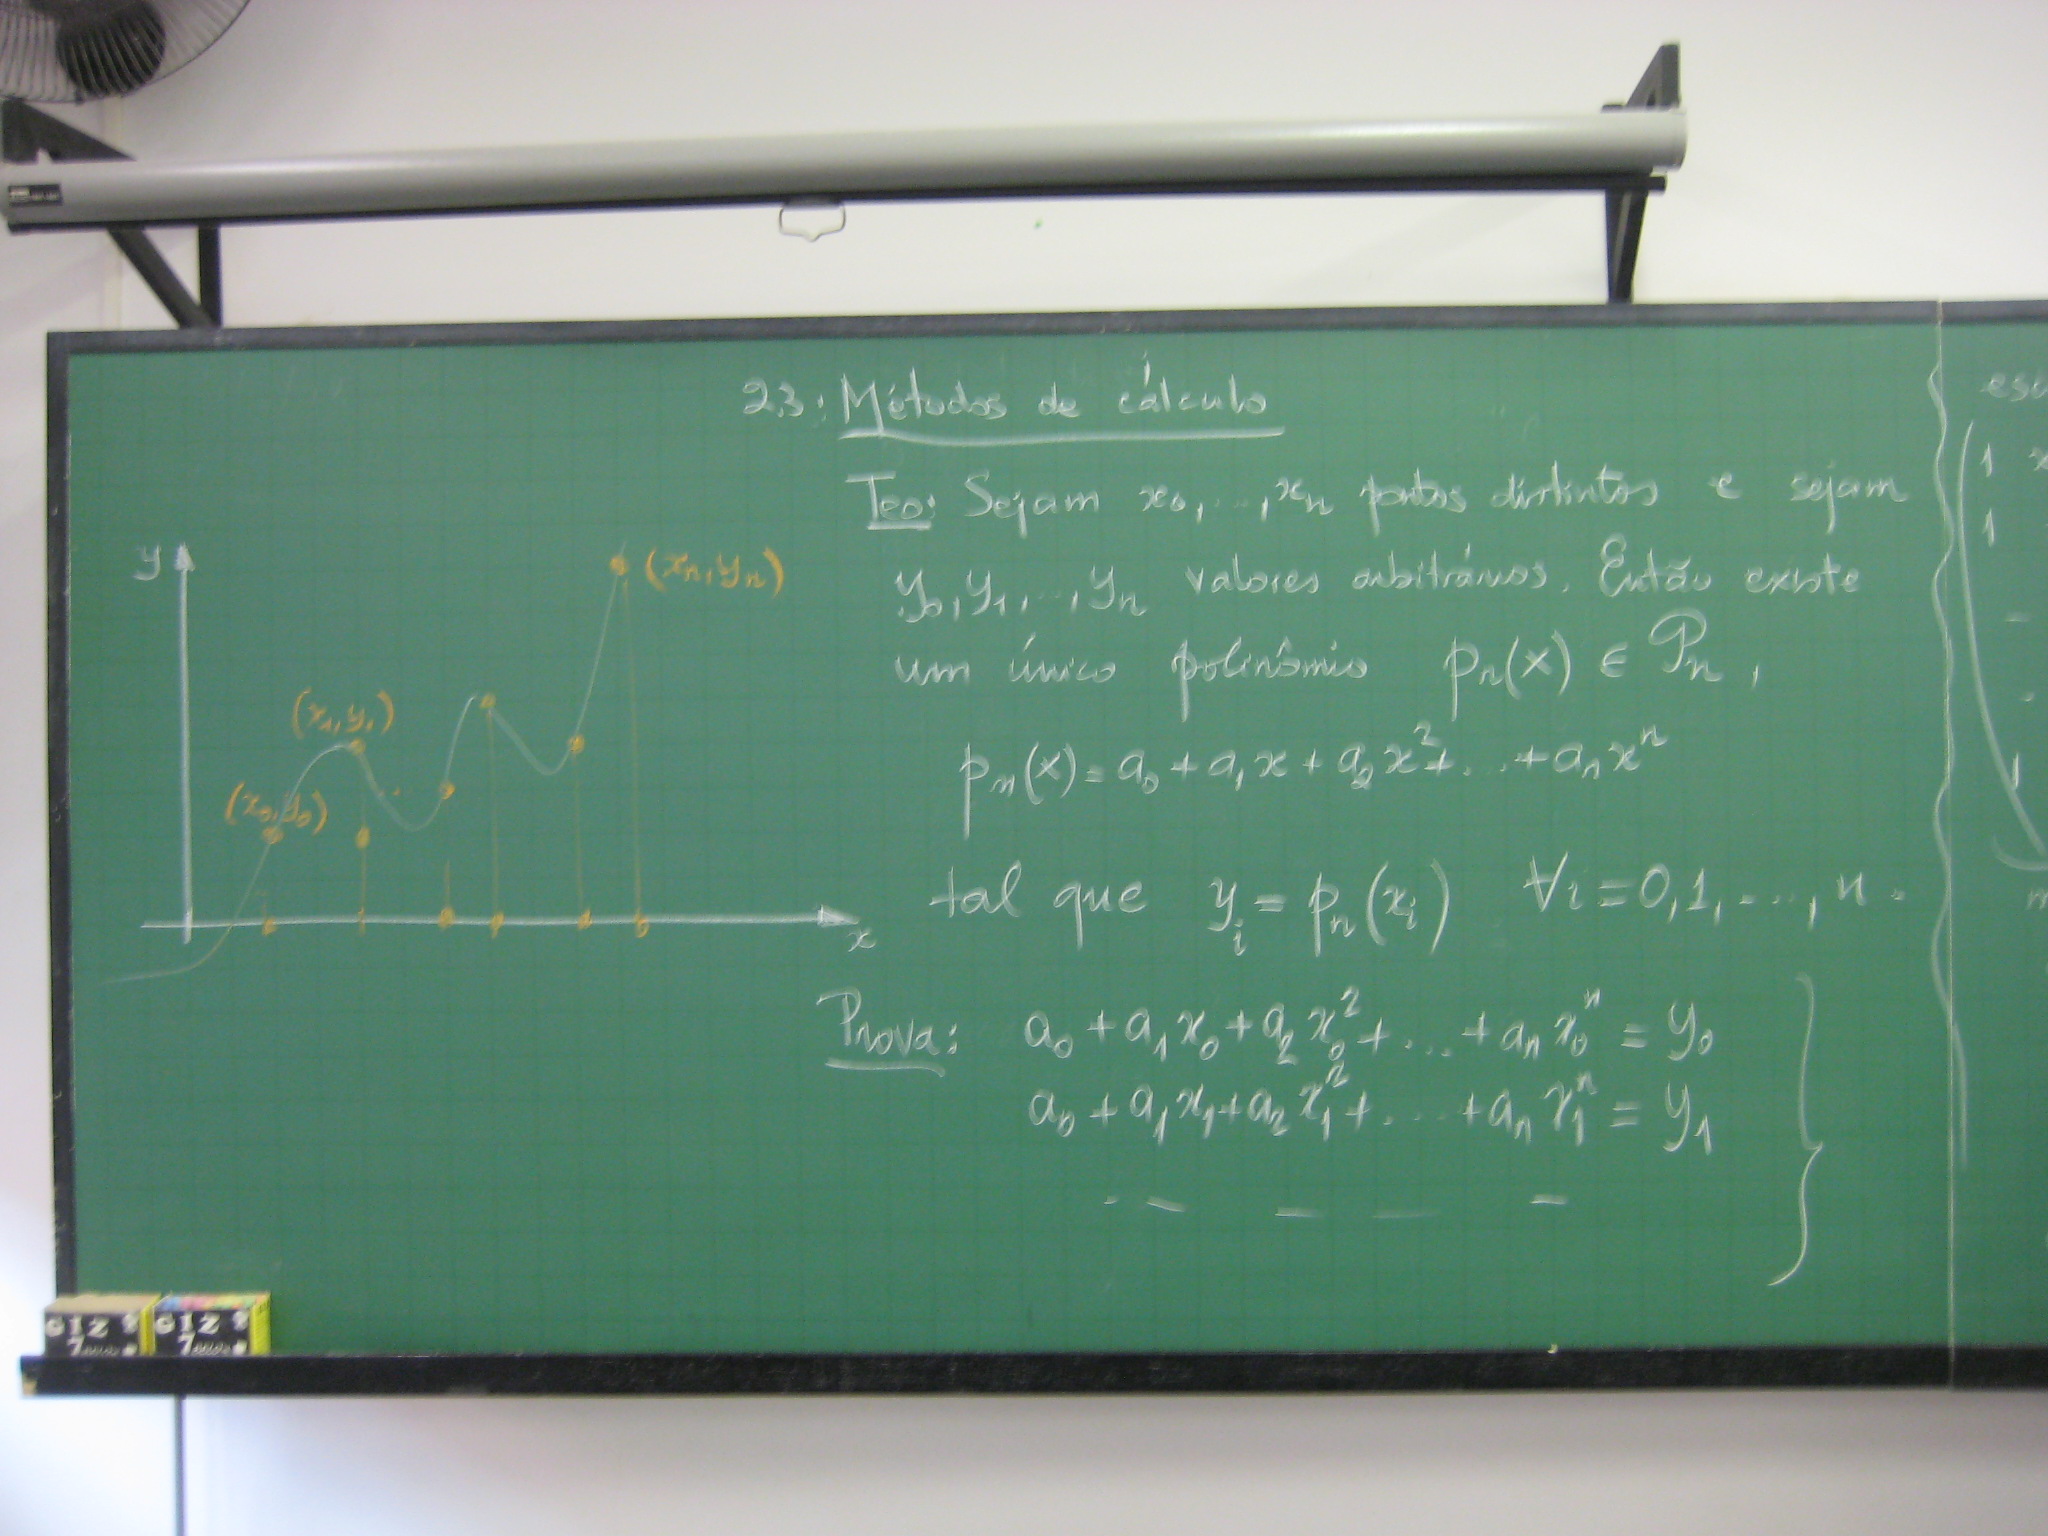 2.3: Métodos de cálculo
Teo: Sejam x₀,...,xₙ pontos distintos e sejam
y₀, y₁, ..., yₙ valores arbitrários. Então existe
um único polinômio pₙ(x) ∈ Pₙ,
pₙ(x) = a₀ + a₁x + a₂x² + ... + aₙxⁿ
tal que yᵢ = pₙ(xᵢ) ∀i = 0, 1, ..., n.
Prova: a₀ + a₁x₀ + a₂x₀² + ... + aₙx₀ⁿ = y₀
a₀ + a₁x₁ + a₂x₁² + ... + aₙx₁ⁿ = y₁
y
(xₙ, yₙ)
(x₁, y₁)
(x₀, y₀)
x
1 x
1
1
GIZ
7
GIZ
7